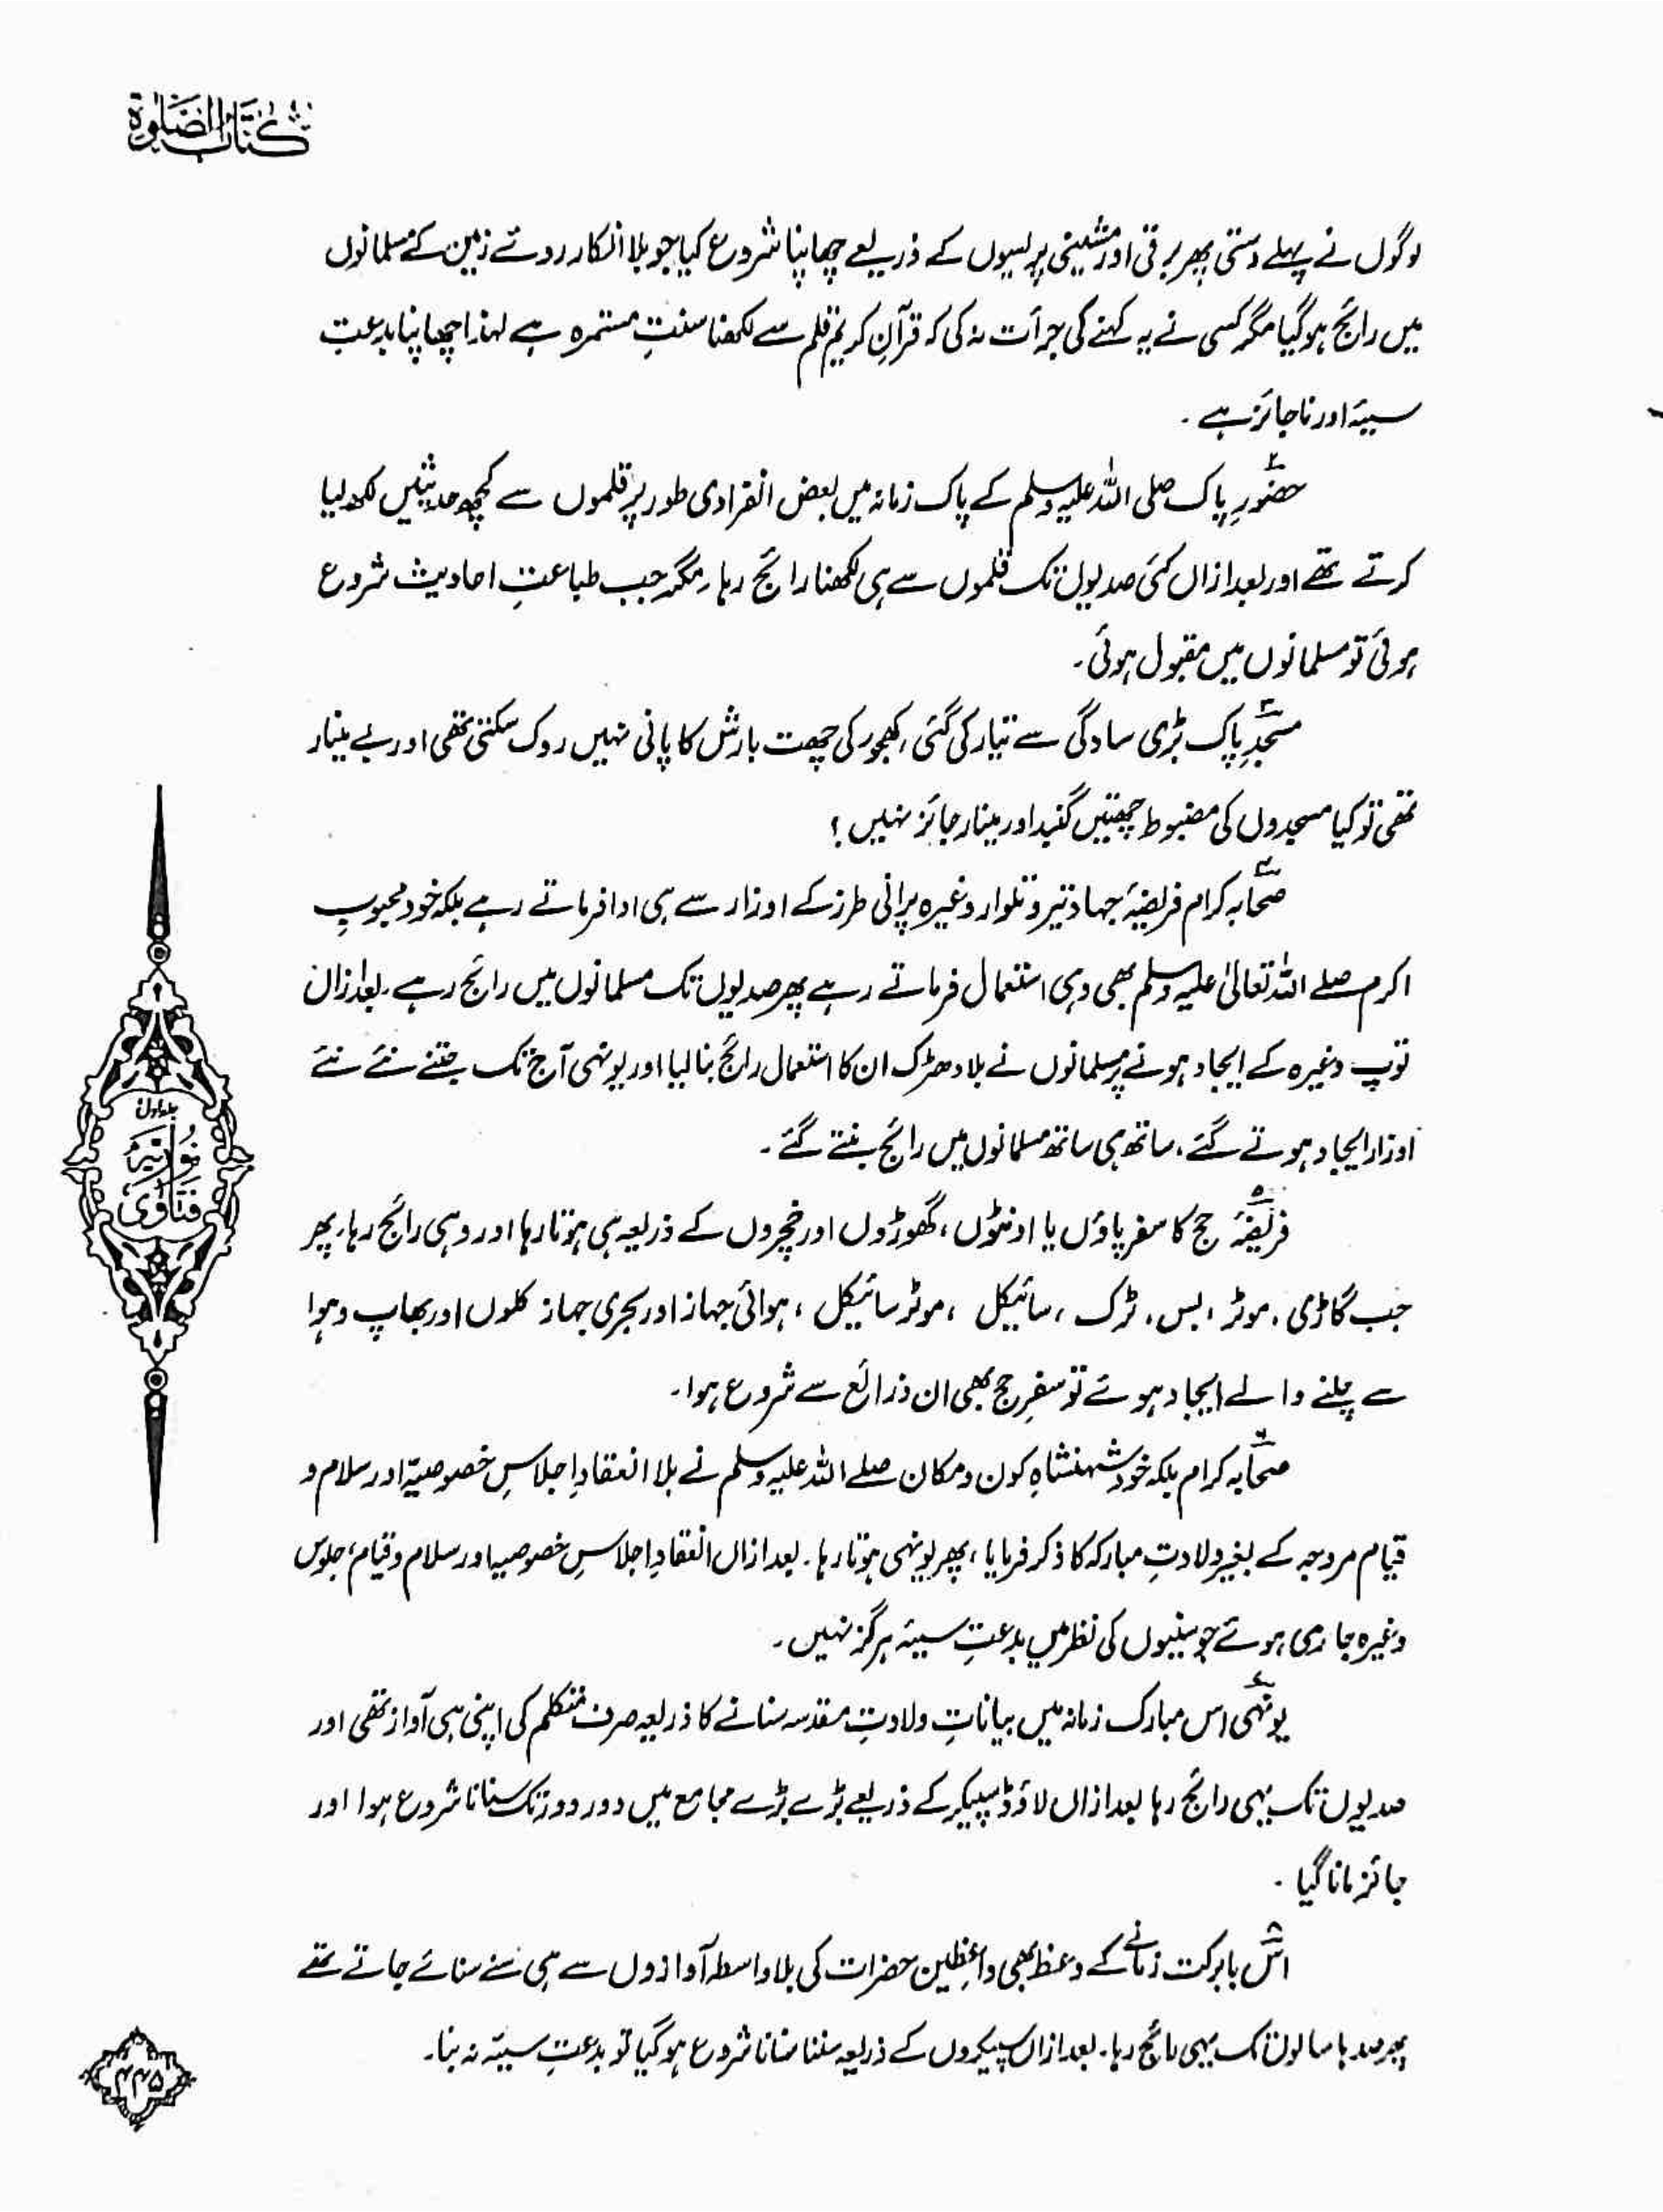 کتاب الصلوٰۃ
لوگوں نے پہلے دستی پھر برقی اور مشینی پریسوں کے ذریعے چھاپنا شروع کیا جو بلا انکار روئے زمین کے مسلمانوں
میں رائج ہوگیا مگر کسی نے یہ کہنے کی جرأت نہ کی کہ قرآنِ کریم قلم سے لکھنا سنتِ مستمرہ ہے لہذا چھاپنا بدعتِ
سیئہ اور ناجائز ہے ۔
۲ حضورِ پاک صلی اللہ علیہ وسلم کے پاک زمانہ میں بعض انفرادی طور پر قلموں سے کچھ حدیثیں لکھ لیا
کرتے تھے اور بعد ازاں کئی صدیوں تک قلموں سے ہی لکھنا رائج رہا، مگر جب طباعتِ احادیث شروع
ہوئی تو مسلمانوں میں مقبول ہوئی۔
۳ مسجدِ پاک بڑی سادگی سے تیار کی گئی، کھجور کی چھت بارش کا پانی نہیں روک سکتی تھی اور بے مینار
تھی تو کیا مسجدوں کی مضبوط چھتیں گنبد اور مینار جائز نہیں؟
۴ صحابہ کرام فریضۂ جہاد تیر و تلوار وغیرہ پرانی طرز کے اوزار سے ہی ادا فرماتے رہے بلکہ خود محبوبِ
اکرم صلے اللہ تعالیٰ علیہ وسلم بھی وہی استعمال فرماتے رہے پھر صدیوں تک مسلمانوں میں رائج رہے۔ بعد ازاں
توپ وغیرہ کے ایجاد ہونے پر مسلمانوں نے بلا دھڑک ان کا استعمال رائج بنالیا اور یونہی آج تک جتنے نئے نئے
اوزار ایجاد ہوتے گئے، ساتھ ہی ساتھ مسلمانوں میں رائج بنتے گئے ۔
۵ فریضۂ حج کا سفر پاؤں یا اونٹوں، گھوڑوں اور خچروں کے ذریعہ ہی ہوتا رہا اور وہی رائج رہا، پھر
جب گاڑی، موٹر، بس، ٹرک، سائیکل، موٹر سائیکل، ہوائی جہاز اور بحری جہاز کلوں اور بھاپ و ہوا
سے چلنے والے ایجاد ہوئے تو سفرِ حج بھی ان ذرائع سے شروع ہوا۔
۶ صحابہ کرام بلکہ خود شہنشاہِ کون و مکان صلے اللہ علیہ وسلم نے بلا انعقادِ اجلاسِ خصوصیہ اور سلام و
قیام مروجہ کے بغیر ولادتِ مبارکہ کا ذکر فرمایا، پھر یونہی ہوتا رہا۔ بعد ازاں انعقادِ اجلاسِ خصوصیہ اور سلام و قیام، جلوس
وغیرہ جاری ہوئے جو سنیوں کی نظر میں بدعتِ سیئہ ہرگز نہیں۔
۷ یونہی اس مبارک زمانہ میں بیاناتِ ولادتِ مقدسہ سنانے کا ذریعہ صرف متکلم کی اپنی ہی آواز تھی اور
صدیوں تک یہی رائج رہا بعد ازاں لاؤڈ سپیکر کے ذریعے بڑے بڑے مجامع میں دور دور تک سنانا شروع ہوا اور
جائز مانا گیا ۔
۸ اس بابرکت زمانے کے وعظ بھی واعظین حضرات کی بلاواسطہ آوازوں سے ہی سنے سنائے جاتے تھے
پھر صدہا سالوں تک یہی رائج رہا۔ بعد ازاں سپیکروں کے ذریعہ سننا سنانا شروع ہوگیا تو بدعتِ سیئہ نہ بنا۔
جلد اول
فتاویٰ نوریہ
۴۴۵